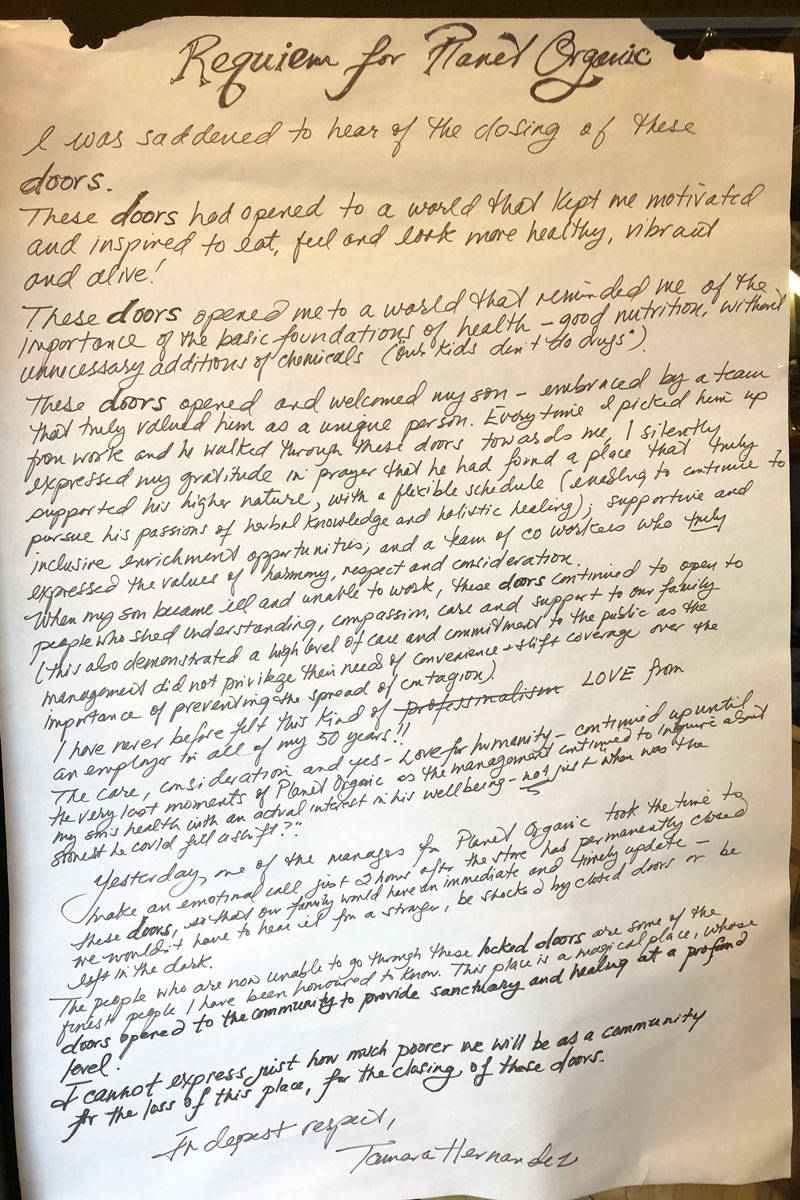 Requiem for Planet Organic
I was saddened to hear of the closing of these
doors.
These doors had opened to a world that kept me motivated
and inspired to eat, feel and look more healthy, vibrant
and alive!
These doors opened me to a world that reminded me of the
importance of the basic foundations of health - good nutrition, without
unnecessary additions of chemicals ("Our kids don't do drugs").
These doors opened and welcomed my son - embraced by a team
that truly valued him as a unique person. Everytime I picked him up
from work and he walked through these doors towards me, I silently
expressed my gratitude in prayer that he had found a place that truly
supported his higher nature, with a flexible schedule (enabling to continue to
pursue his passions of herbal knowledge and holistic healing); supportive and
inclusive enrichment opportunities; and a team of co workers who truly
expressed the values of harmony, respect and consideration.
When my son became ill and unable to work, these doors continued to open to
people who shed understanding, compassion, care and support to our family
(this also demonstrated a high level of care and commitment to the public as the
management did not privilege their needs of convenience + shift coverage over the
importance of preventing the spread of contagion).
I have never before felt this kind of professionalism LOVE from
an employer in all of my 50 years!!
The care, consideration and yes - Love for humanity - continued up until
the very last moments of Planet Organic as the management continued to inquire about
my son's health with an actual interest in his wellbeing - not just when was the
soonest he could fill a shift?"
Yesterday, one of the manages for Planet Organic took the time to
make an emotional call just 2 hours after the store had permanently closed
these doors, so that our family would have an immediate and timely update -
we wouldn't have to hear it fm a stranger, be shocked by closed doors or be
left in the dark.
The people who are now unable to go through these locked doors are some of the
finest people I have been honoured to know. This place is a magical place, whose
doors opened to the community to provide sanctuary and healing at a profound
level.
I cannot express just how much poorer we will be as a community
for the loss of this place, for the closing of these doors.
In depest respect,
Tamara Hernandez